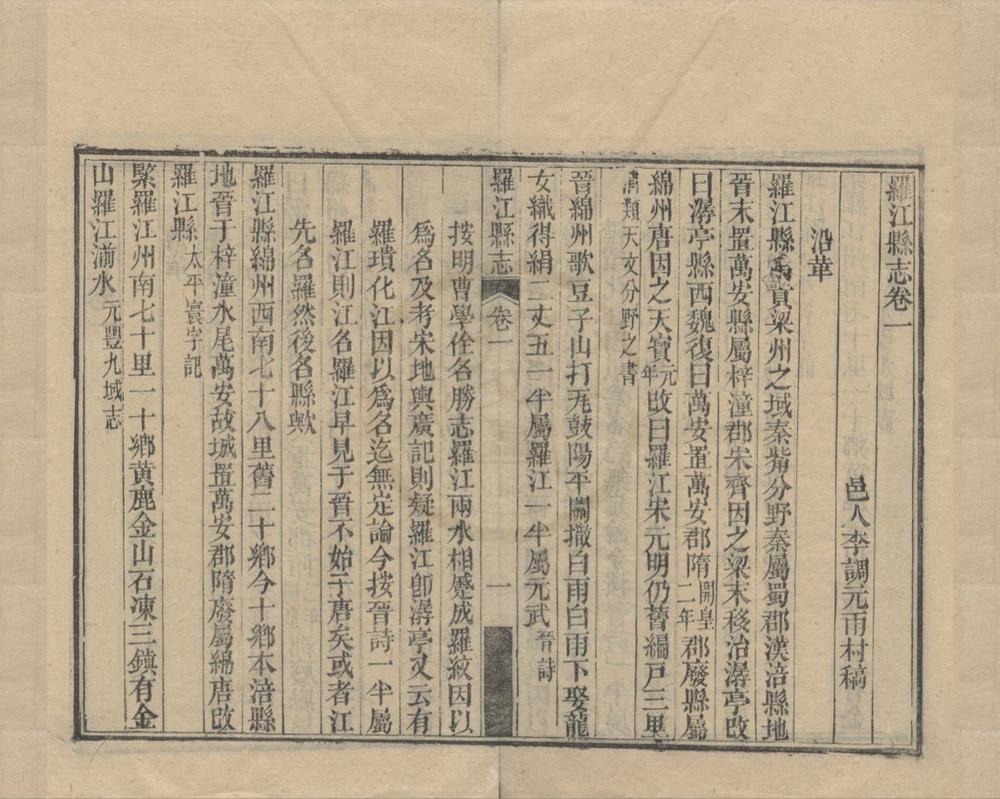 羅江縣志卷一
邑人李調元雨村稿
沿革
羅江縣禹貢梁州之域秦觜分野秦屬蜀郡漢涪縣地
晉末置萬安縣屬梓潼郡宋齊因之梁末移治潺亭改
曰潺亭縣西魏復曰萬安置萬安郡隋開皇二年郡廢縣屬
綿州唐因之天寶元年改曰羅江宋元明仍舊編戸三里
清類天文分野之書
晉綿州歌豆子山打瓦鼓陽平關撒白雨白雨下娶龍
女織得絹二丈五一半屬羅江一半屬元武晉詩
羅江縣志 卷一 一
按明曹學佺名勝志羅江兩水相蹙成羅紋因以
爲名及考宋地輿廣記則疑羅江卽潺亭又云有
羅璝化江因以爲名迄無定論今按晉詩一半屬
羅江則江名羅江早見于晉不始于唐矣或者江
先名羅然後名縣歟
羅江縣綿州西南七十八里舊二十鄉今十鄉本涪縣
地晉于梓潼水尾萬安故城置萬安郡隋廢屬綿唐改
羅江縣太平寰宇記
緊羅江州南七十里一十鄉黃鹿金山石凍三鎮有金
山羅江湔水元豐九域志